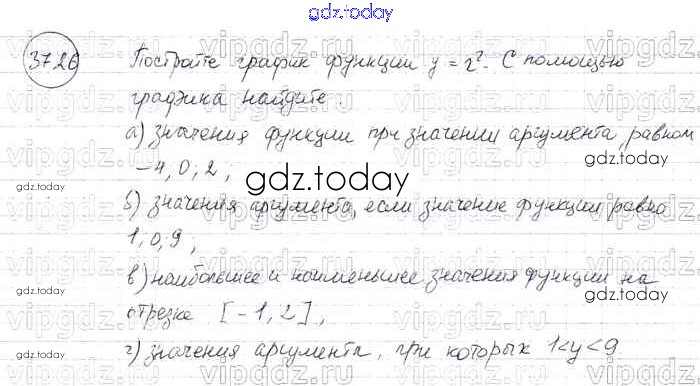 gdz.today
37.26 Постройте график функции y = x². С помощью
графика найдите:
а) значения функции при значении аргумента, равном
-4, 0, 2;
gdz.today
б) значения аргумента, если значение функции равно
1, 0, 9;
в) наибольшее и наименьшее значения функции на
отрезке [-1, 2],
г) значения аргумента, при которых 1<y<9